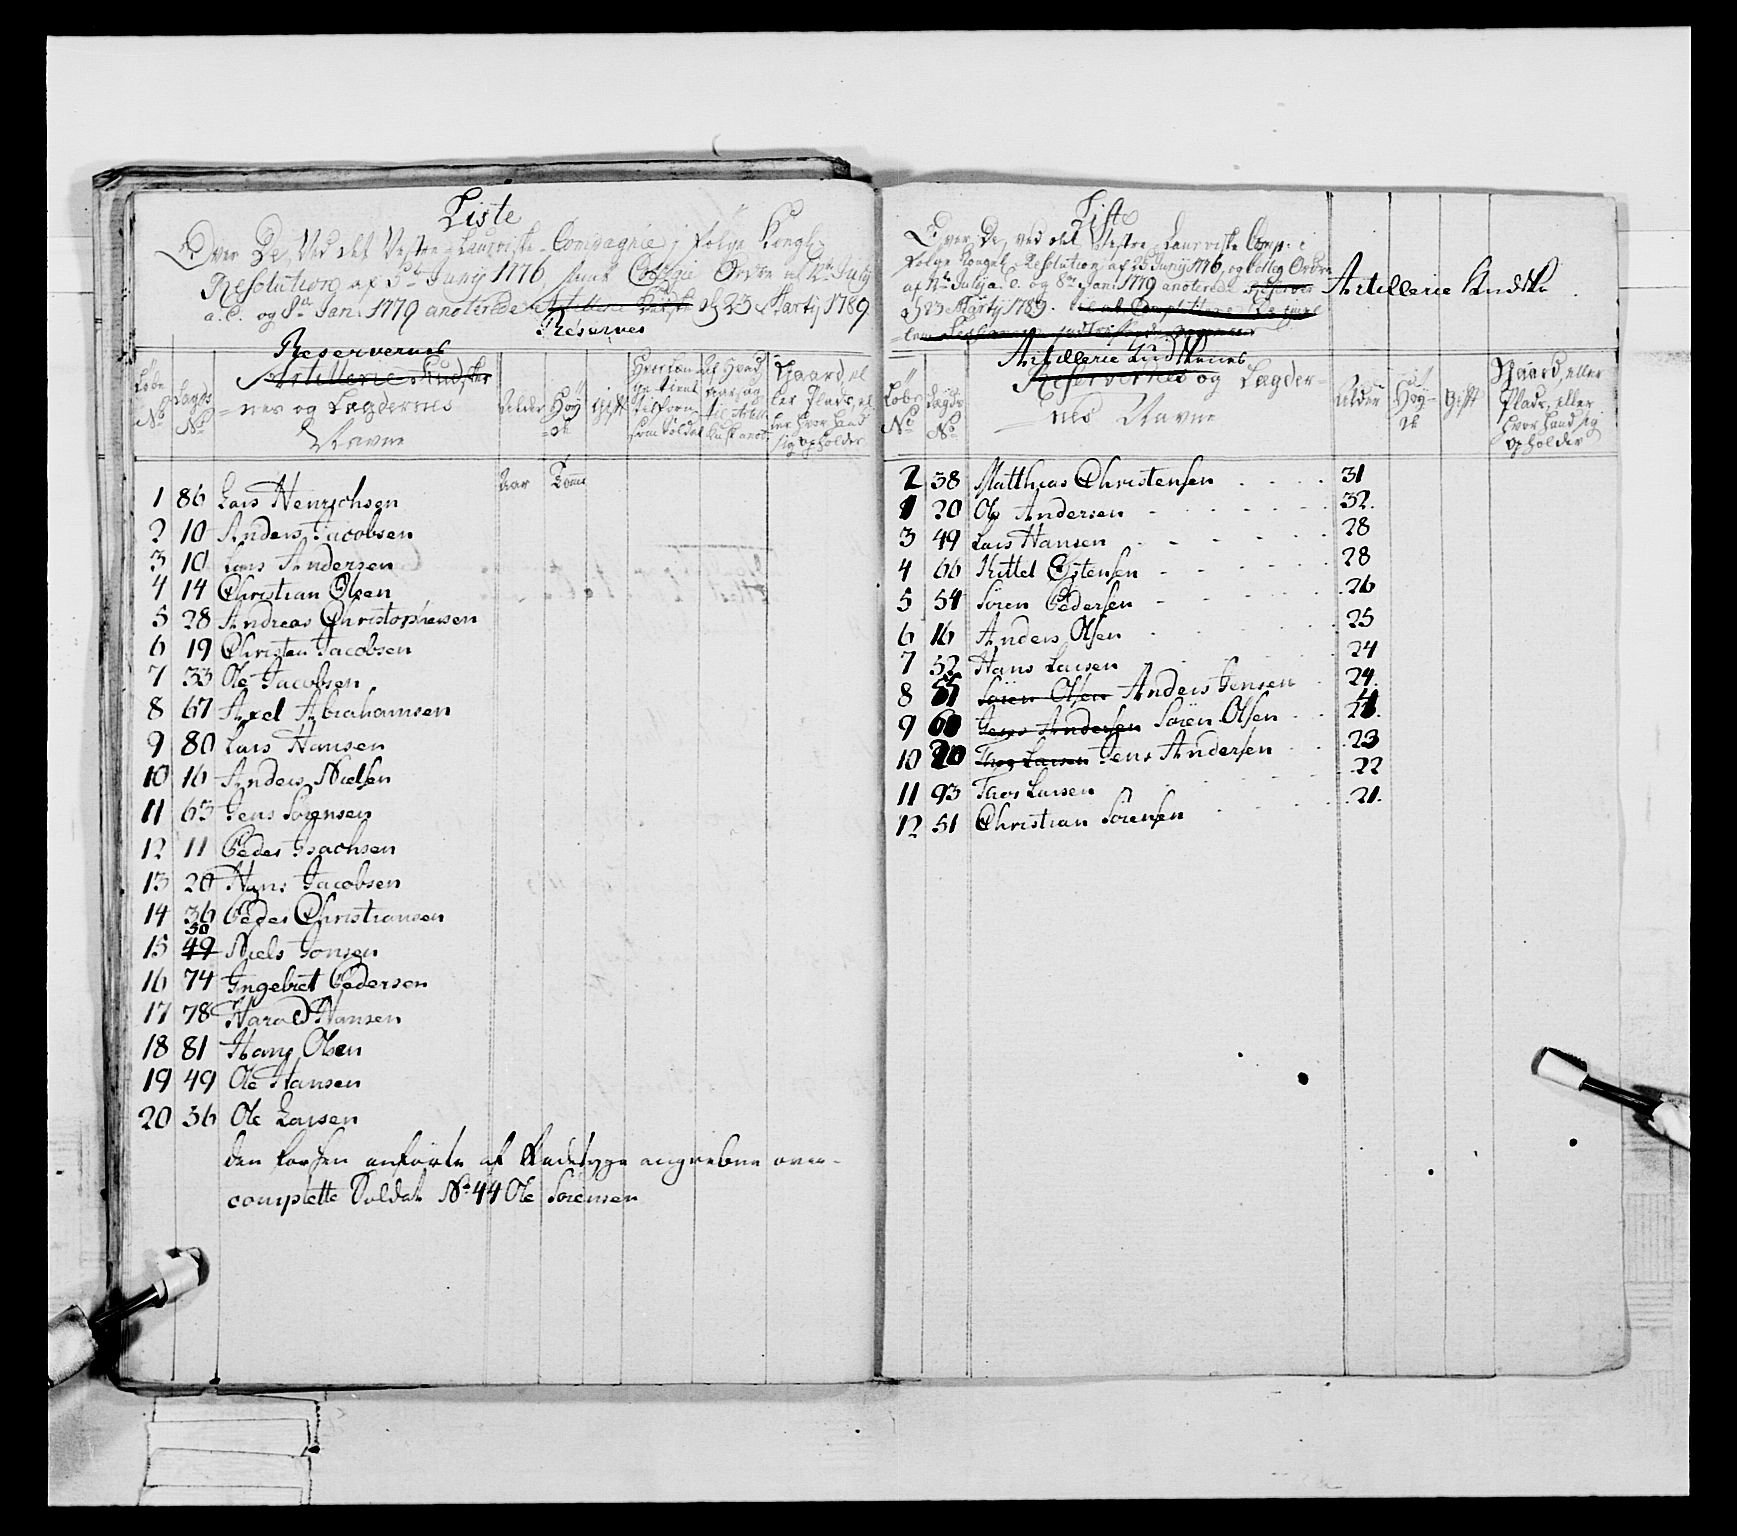 Liste
Over De, Ved det Vestre Laurviske Compagnie, i følge Kongl.
Resolution af 5te Junij 1776, samt Collegie Ordre af 12te Julij
a. c. og 8de Jan. 1779 anoterede Artillerie Kudske d 23 Martij 1789
Reserver
Reservernes
Artillerie Kudsker
Løbe No
Lægds No
nes og Lægdernes
Navne
Alder
Høy
Gift
Gaard, el
ler Plads, el
ler hvor hand
sig opholder
Aar
Tomr
1 86 Lars Henrichsen
2 10 Anders Jacobsen
3 10 Lars Andersen
4 14 Christian Olsen
5 28 Andreas Christophersen
6 19 Christen Jacobsen
7 33 Ole Jacobsen
8 67 Axel Abrahamsen
9 80 Lars Hansen
10 16 Anders Nielsen
11 63 Jens Sørensen
12 11 Peder Isachsen
13 20 Hans Jacobsen
14 36 Peder Christiansen
50
15 49 Niels Jonsen
16 74 Ingebret Pedersen
17 78 Harald Hansen
18 81 Hans Olsen
19 49 Ole Hansen
20 36 Ole Larsen
den forhen anførte af angrebne over-
complette Soldat No 44 Ole Sørensen
Liste
Over De, ved det Vestre Laurviske Comp: i
følge Kongel. Resolution af 25 Junij 1776, og Colleg. Ordre
af 12te Julij a. c. og 8de Jan. 1779 anoterede Reserver Artillerie Kudske
d 23 Martij 1789.
Artillerie Kudskenes
Reservernes og Lægder-
nes Navne
Løbe No
Lægds No
Alder
Høy-
de
Gift
Gaard, eller
Plads, eller
hvor hand sig
opholder
2 38 Matthias Christensen 31
1 20 Ole Andersen 32.
3 49 Lars Hansen 28
4 66 Kittel Østensen 28
5 54 Sören Pedersen 26
6 16 Anders Olsen 25
7 52 Hans Larsen 24
8 55 Sören Olsen Anders Jensen 24.
9 60 Jens Andersen Sören Olsen
10 20 Thor Larsen Jens Andersen 23
11 93 Thor Larsen 22
12 51 Christian Sörensen 21.